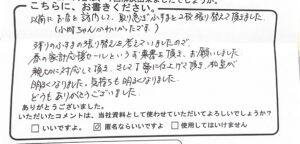 こちらに、お書きください。
以前にお店を訪問して、取り急ぎふすまを2枚張り替えて頂きました。
(小町ちゃんかわいかったです。)
残りのふすまの張り替えも考えていましたので、
春の家計応援セールという葉書を頂き、お願いしました。
親切に対応して頂き、そして丁寧に仕上げて頂き、和室が
明るくなりました。気持ちも明るくなりました。
どうもありがとうございました。
ありがとうございました。
いただいたコメントは、当社資料として使わせていただいてよろしいでしょうか?
□いいですよ。 ☑匿名ならいいですよ □使用してはいけません